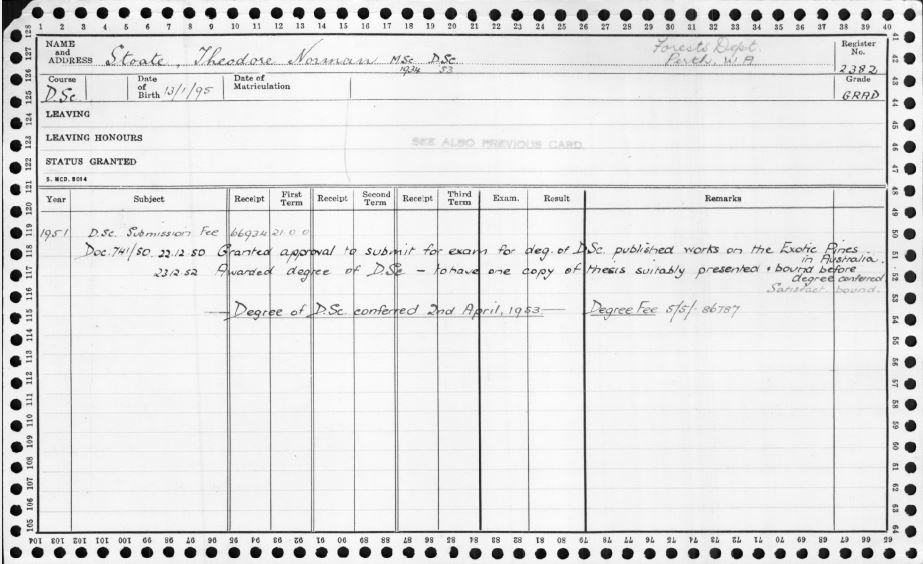 2 3 4 5 6 7 8 9 10 11 12 13 14 15 16 17 18 19 20 21 22 23 24 25 26 27 28 29 30 31 32 33 34 35 36 37 38 39 40
NAME and ADDRESS Stoate, Theodore Norman MSc 1934 D.Sc 53
Forests Dept.
Perth. W.A
Register No. 2382
Course D.Sc.
Date of Birth 13/1/95
Date of Matriculation
Grade GRAD
LEAVING
LEAVING HONOURS
SEE ALSO PREVIOUS CARD
STATUS GRANTED
S. MCD. 5014
Year Subject Receipt First Term Receipt Second Term Receipt Third Term Exam. Result Remarks
1951 D.Sc. Submission Fee 66934 21.0.0
Doc.741/50. 22.12.50 Granted approval to submit for exam for deg. of D.Sc. published works on the Exotic Pines in Australia.
23.12.52 Awarded degree of D.Sc – to have one copy of thesis suitably presented & bound before degree conferred
Satisfact. bound.
— Degree of D.Sc. conferred 2nd April, 1953 — Degree Fee 5/5/- 86787
128 127 126 125 124 123 122 121 120 119 118 117 116 115 114 113 112 111 110 109 108 107 106 105
41 42 43 44 45 46 47 48 49 50 51 52 53 54 55 56 57 58 59 60 61 62 63 64
104 103 102 101 100 99 98 97 96 95 94 93 92 91 90 89 88 87 86 85 84 83 82 81 80 79 78 77 76 75 74 73 72 71 70 69 68 67 66 65